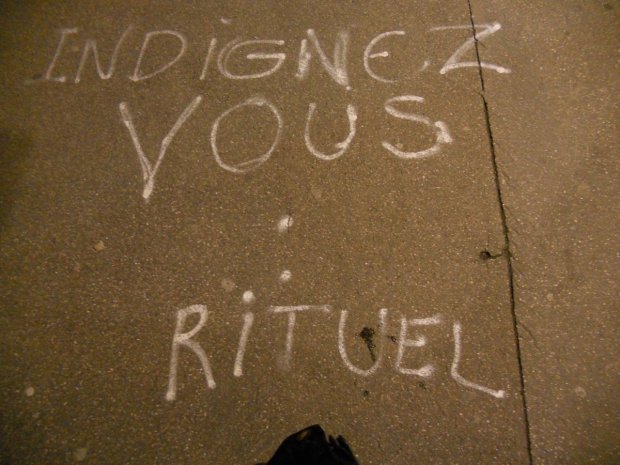 INDIGNEZ
VOUS
:
RITUEL